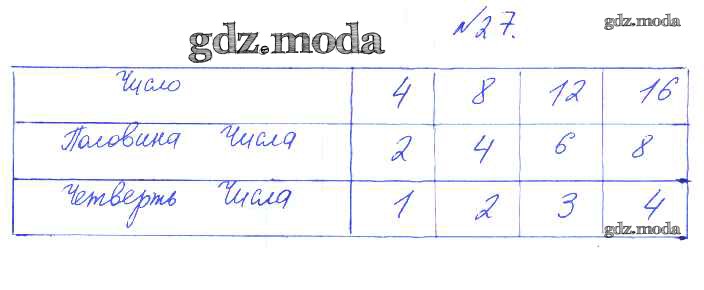 №27.
gdz.moda
gdz.moda
Число 4 8 12 16
Половина Числа 2 4 6 8
Четверть Числа 1 2 3 4
gdz.moda